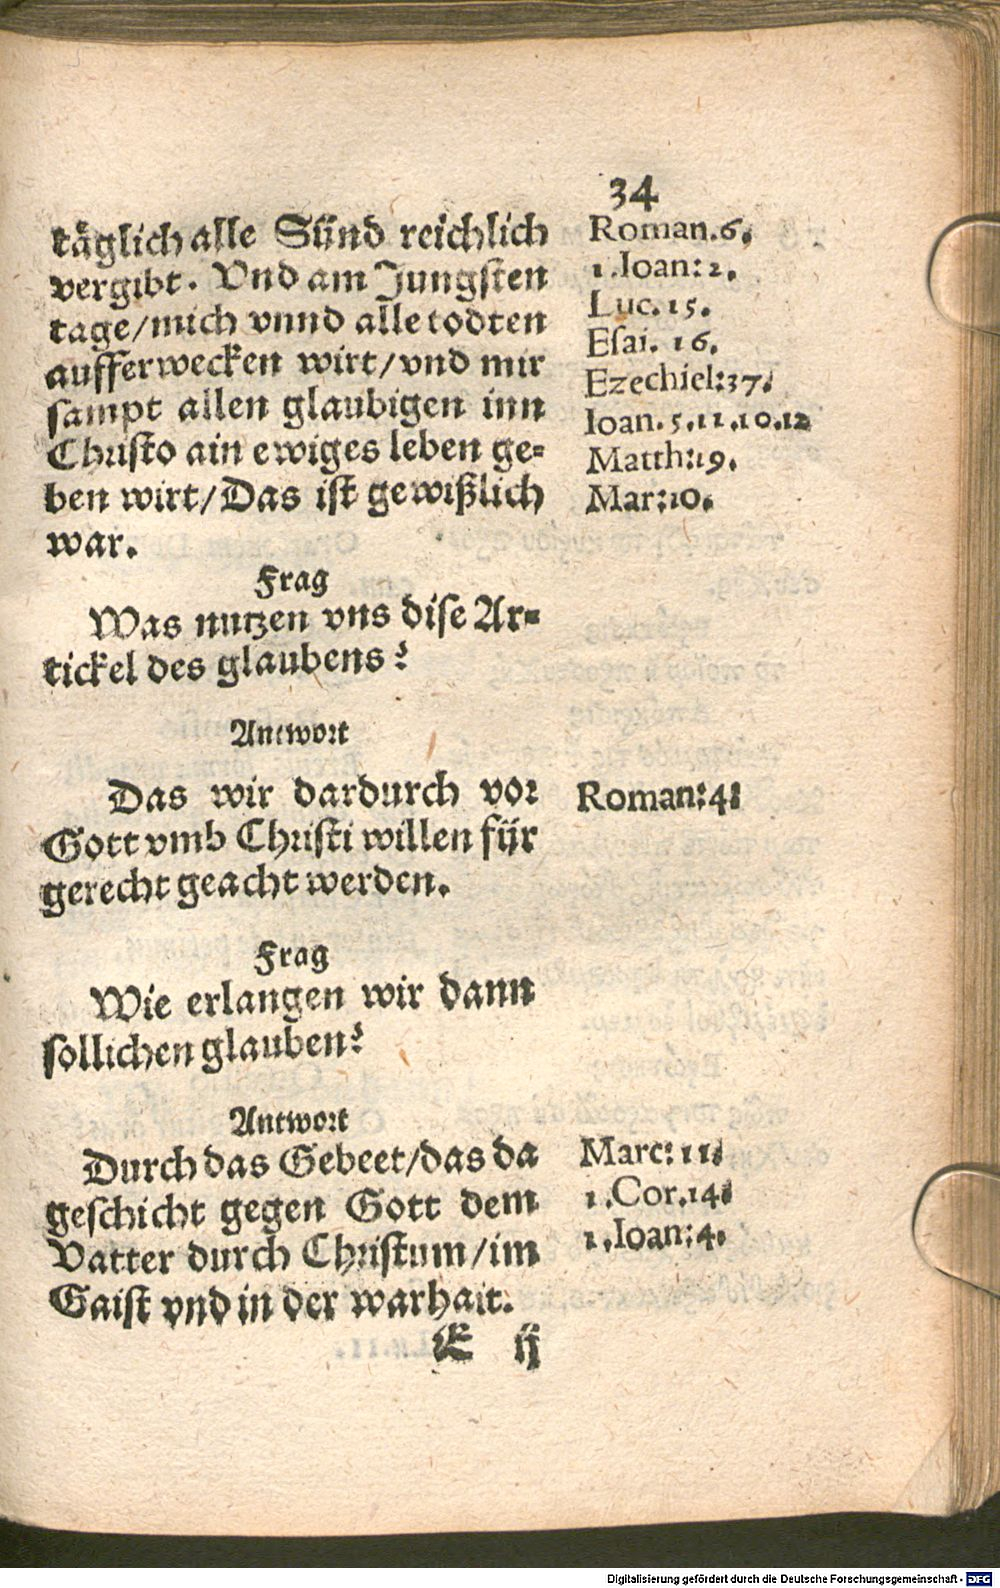 34
täglich alle Sünd reichlich
vergibt. Vnd am Jungsten
tage/mich vnnd alle todten
aufferwecken wirt/vnd mir
sampt allen glaubigen inn
Christo ain ewiges leben ge-
ben wirt/Das ist gewißlich
war.
Roman.6.
1.Ioan:2.
Luc.15.
Esai. 16.
Ezechiel:37.
Ioan.5.11.10.12
Matth:19.
Mar:10.
Frag
Was nutzen vns dise Ar-
tickel des glaubens?
Antwort
Das wir dardurch vor
Gott vmb Christi willen für
gerecht geacht werden.
Roman:4:
Frag
Wie erlangen wir dann
sollichen glauben?
Antwort
Durch das Gebeet/das da
geschicht gegen Gott dem
Vatter durch Christum/im
Gaist vnd in der warhait.
Marc:11.
1.Cor.14.
1.Ioan:4.
E ij
Digitalisierung gefördert durch die Deutsche Forschungsgemeinschaft - DFG